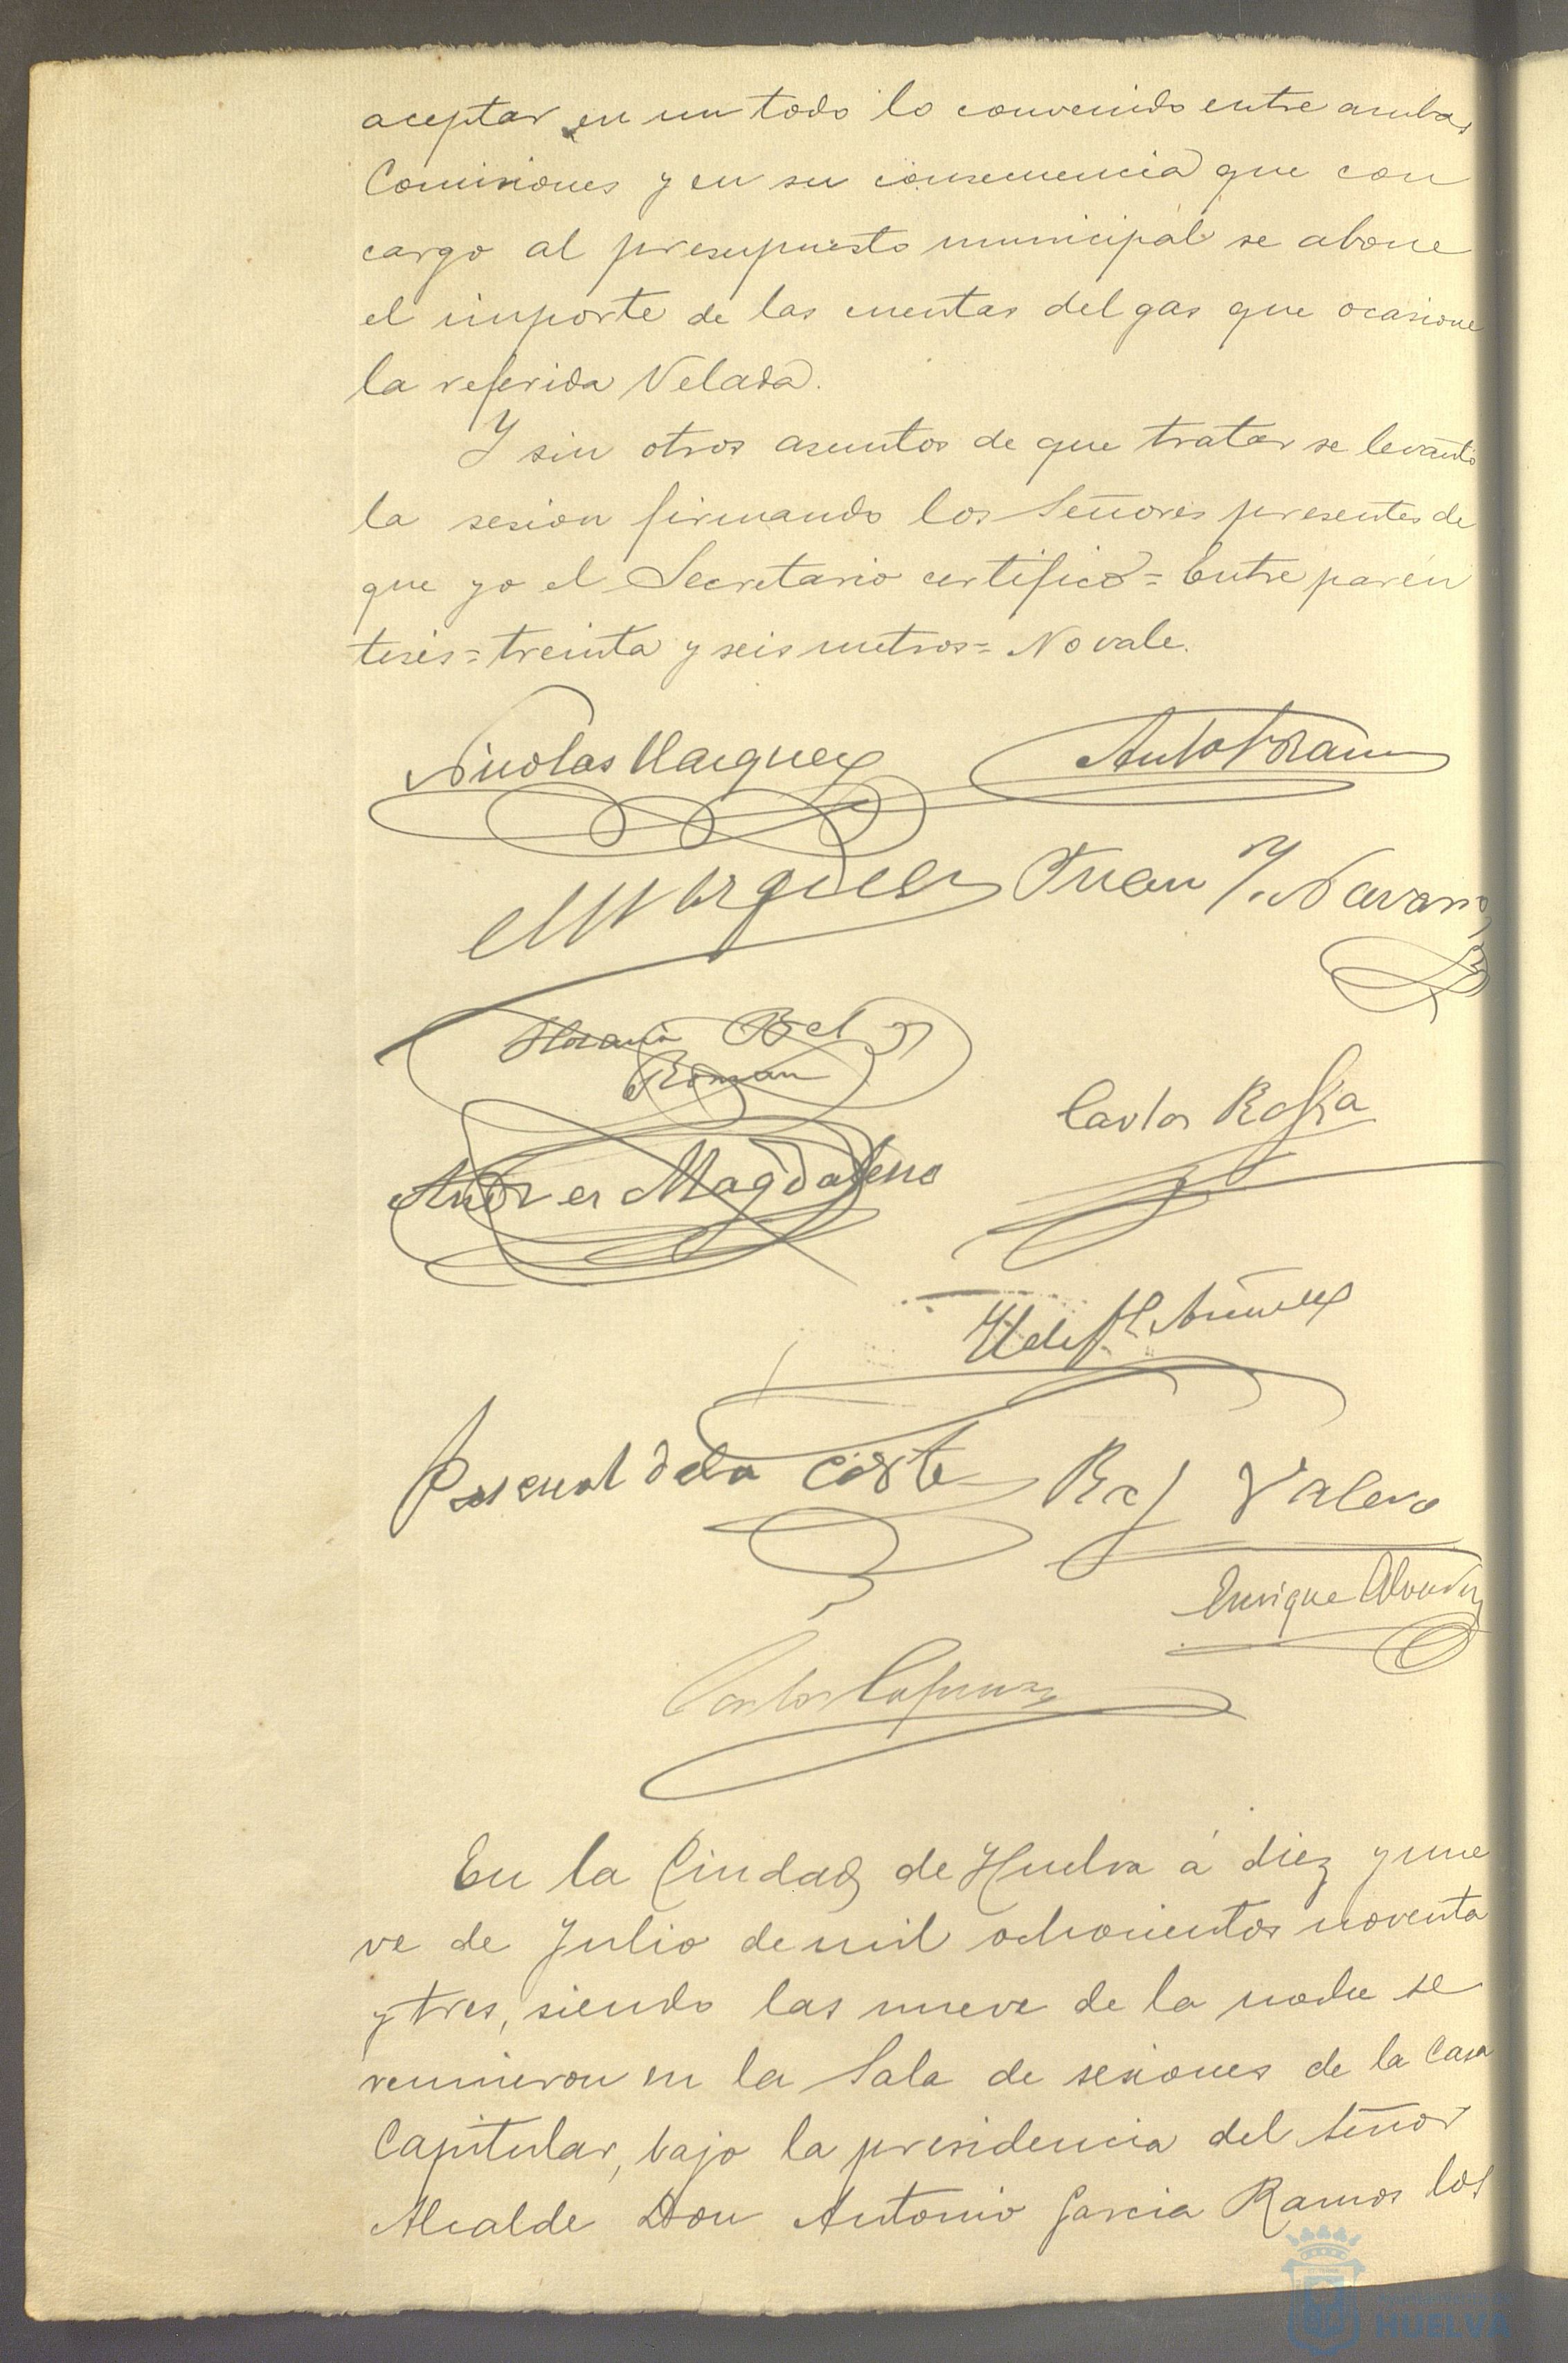 aceptar en un todo lo convenido entre ambas
Comisiones y en su consecuencia que con
cargo al presupuesto municipal se abone
el importe de las cuentas del gas que ocasione
la referida Velada.
Y sin otros asuntos de que tratar se levantó
la sesion firmando los Señores presentes de
que yo el Secretario certifico = Entre parén
tesis = treinta y seis metros = No vale.
Nicolas Marquez
Marquez Juan Navarro
Roman
Carlos
Andres Magdaleno
Pascual de la Corte Raf Valero
Enrique
Carlos
En la Ciudad de Huelva á diez y nue
ve de Julio de mil ochocientos noventa
y tres, siendo las nueve de la noche se
reunieron en la Sala de sesiones de la Casa
Capitular, bajo la presidencia del Señor
Alcalde Don Antonio Garcia Ramos los
HUELVA